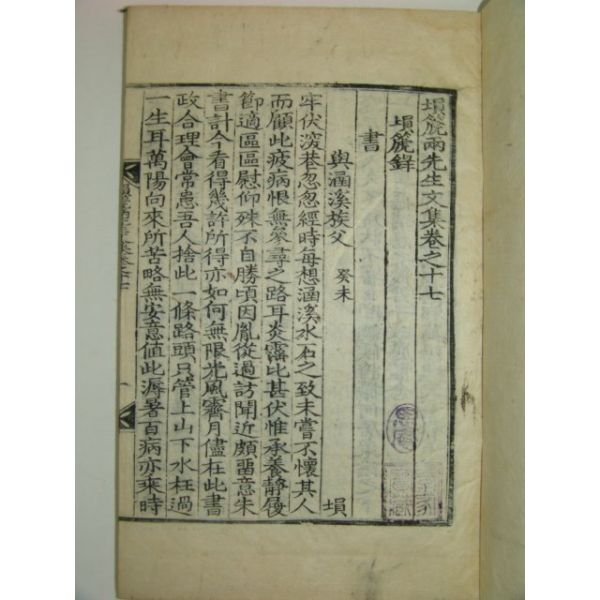 塤篪兩先生文集卷之十七
塤篪錄
書
與涵溪族父 癸未 塤
牢伏深巷忽忽經時每想涵溪水石之致未嘗不懷其人
而顧此疲病悵無參尋之路耳炎霱比甚伏惟承養靜履
節適區區慰仰殊不自勝頃因胤從過訪聞近頗留意朱
書計今看得幾許所得亦如何無限光風霽月儘在此書
政合理會常患吾人捨此一條路頭只管上山下水枉過
一生耳萬陽向來所苦略無安意値此溽暑百病亦乘時